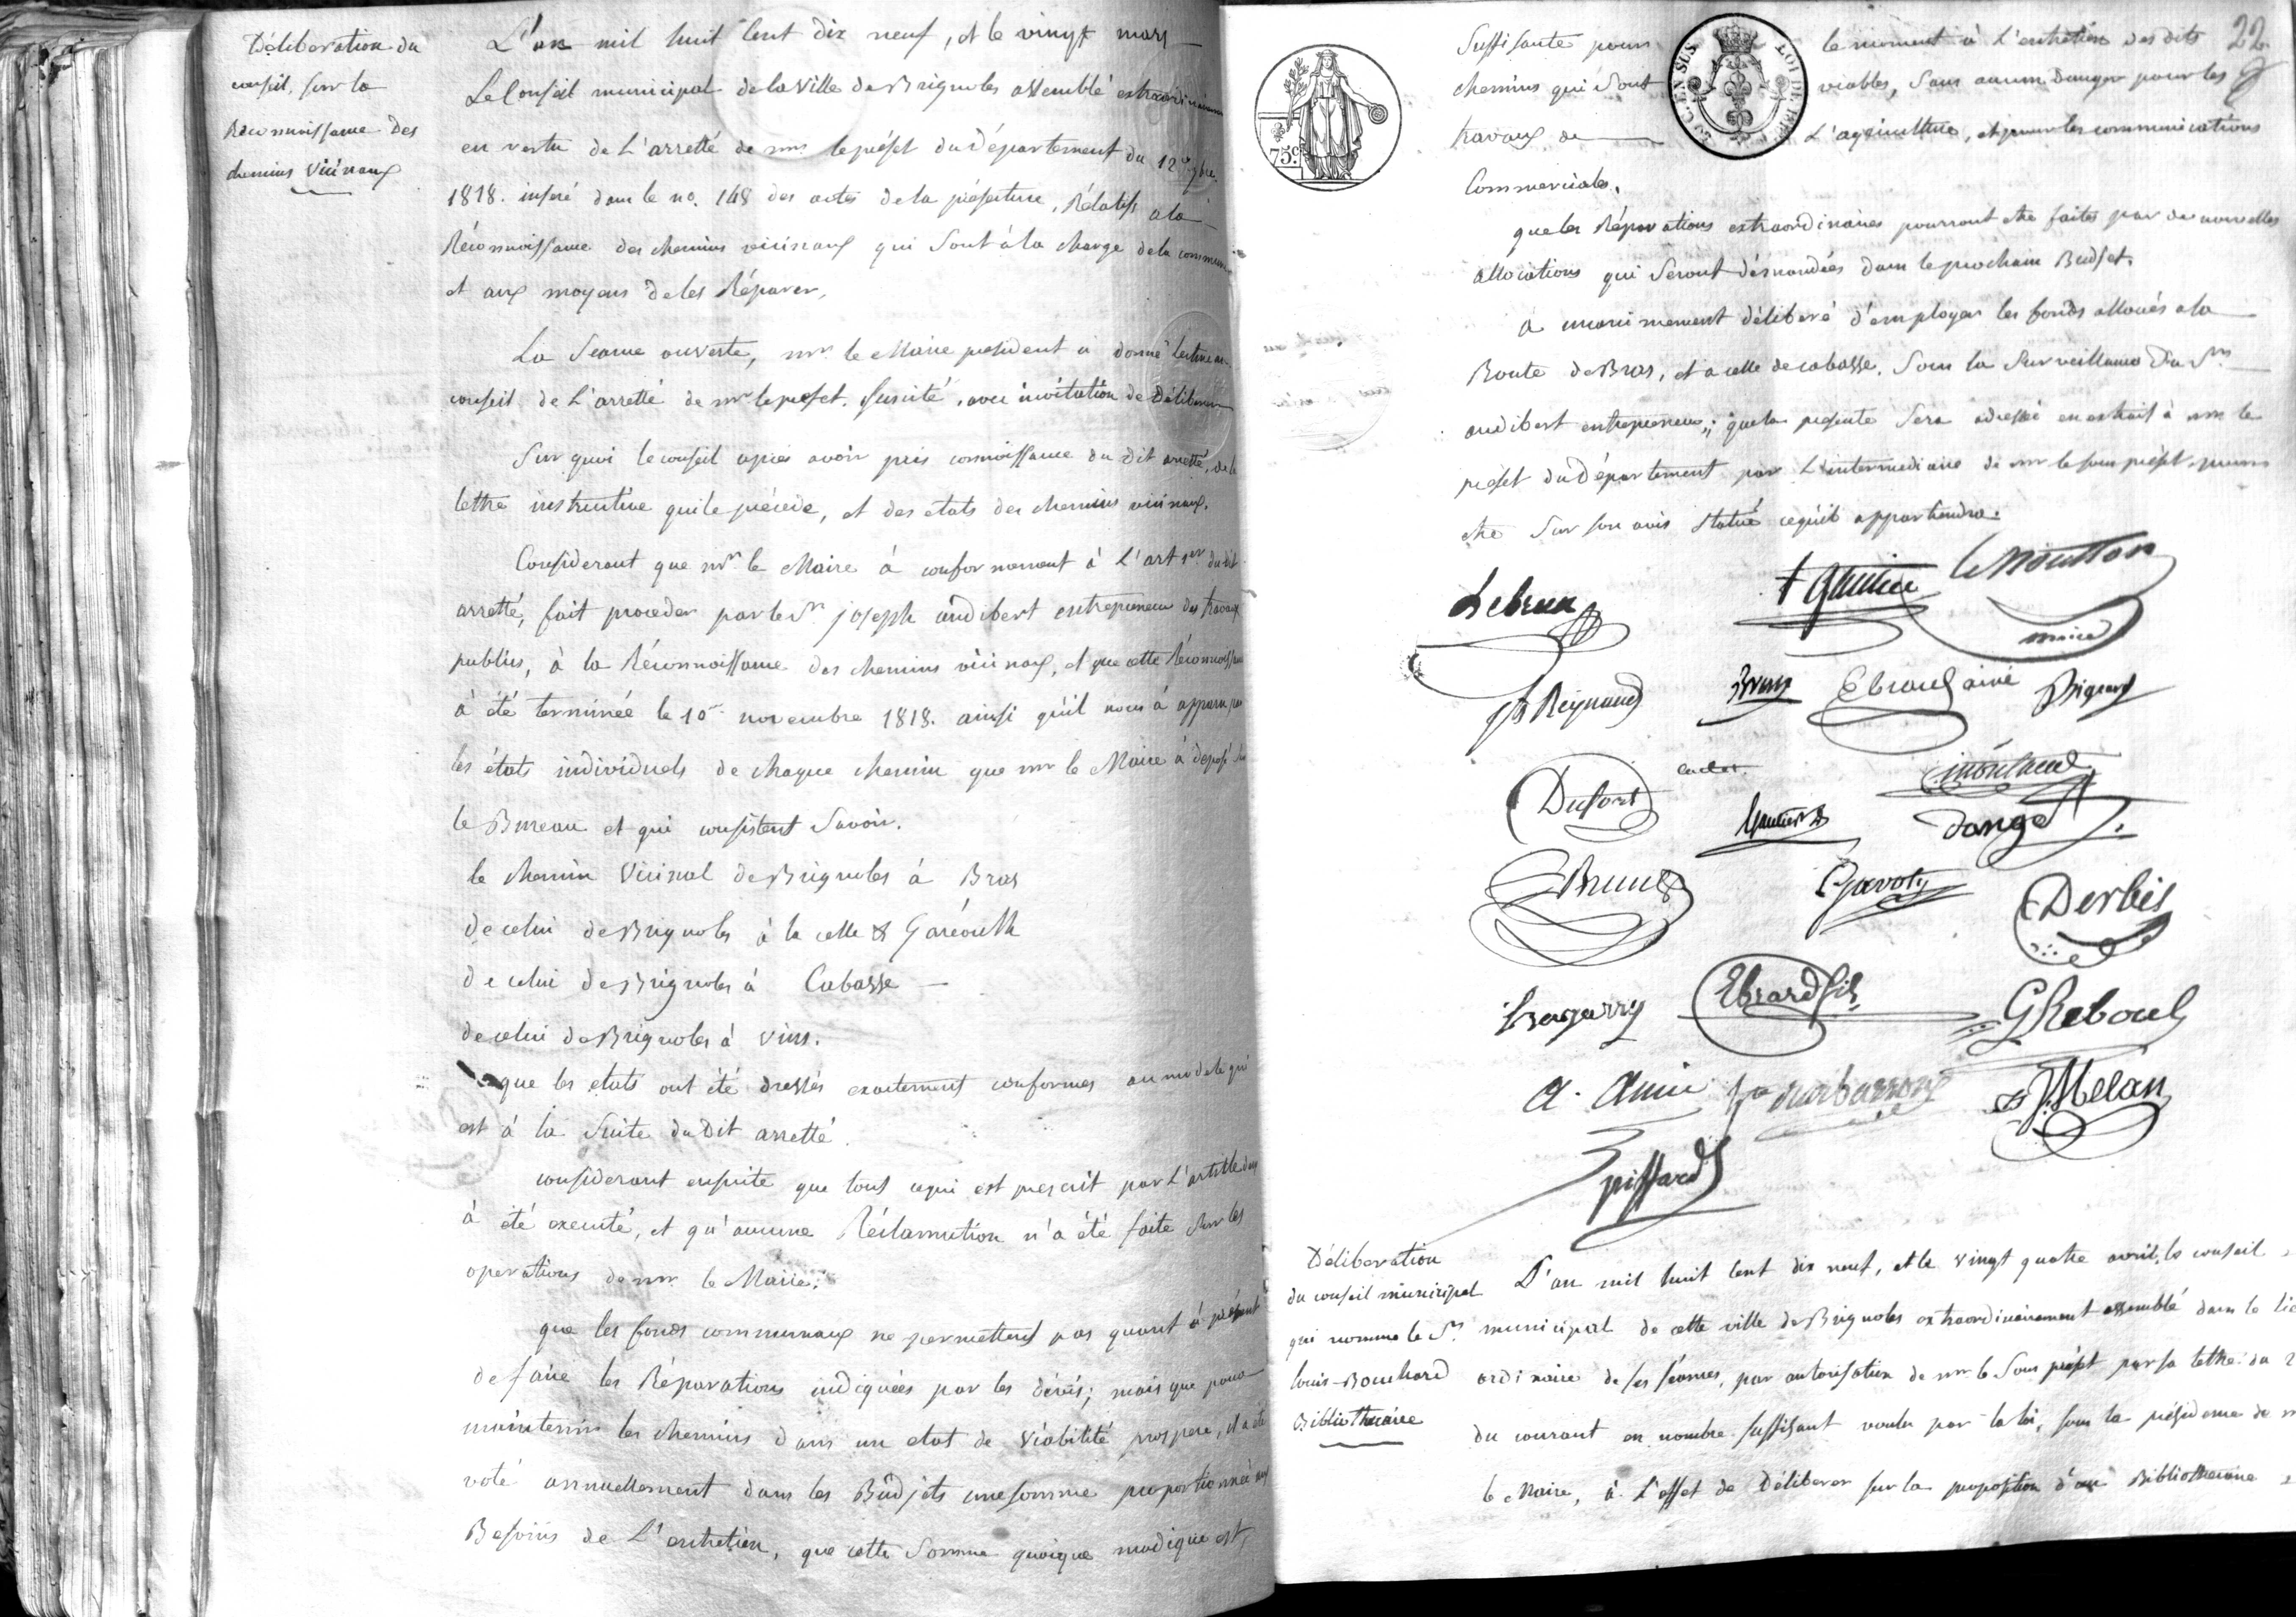 Déliberation du
conseil, sur la
Réconnoissance des
chemins vicinaux
L'an mil huit Cent dix neuf, et le vingt mars
Le Conseil municipal de la Ville de Brignoles assemblé extraordinairement
en vertu de L'arretté de mr. le préfet du Département du 12 9bre.
1818. inseré dans le no. 148 des actes de la préfecture, Rélatifs a la
Réconnoissance des chemins vicinaux qui sont à la charge de la commune
et aux moyens de les Réparer,
La Seance ouverte, mr. le Maire president a donné lecture au
conseil de L'arretté de mr le prefet. susvité, avec invitation de Déliberer
Sur quoi le conseil apres avoir pris connoissance du dit arretté, de la
lettre instructive qui le précede, et des etats des chemins vicinaux.
Considerant que mr. le Maire à conformement à L'art 1er. du dit
arretté, fait proceder par le Sr. joseph audibert entrepreneur des travaux
publics, à la Réconnoissance des chemins vicinaux, et que cette Réconnoissance
à été terminée le 10 novembre 1818. ainsi qu'il nous à apparu par
les états individuels de chaque chemin que mr le Maire à deposé sur
le Bureau et qui consistent Savoir.
le chemin Vicinal de Brignoles à Bras
de celui de Brignoles à la celle & Garéoult
de celui de Brignoles à Cabasse —
de celui de Brignoles à Vins.
que les etats ont été dressés exactement conformes au modele qui
est à la Suite du Dit arretté.
considerant ensuite que tout ce qui est prescrit par L'article deux
à été executé, et qu'aucune Réclamation n'a été faite sur les
operations de mr le Maire;
que les fonds communaux ne permettent pas quant à présent
de faire les Réparations indiquées par les dévis; mais que pour
maintenir les chemins dans un etat de Viabilité prospere, il a été
voté annuellement dans les Budjets une somme proportionnée aux
Besoins de L'entretien, que cette Somme quoique modique est,
22
75 c.
EN SUS
LOI DE
Suffisante pour le moment à L'entretien des dits
chemins qui sont viables, Sans aucun Danger pour les
travaux de — L'agriculture, et pour les communications
Commerciales.
que les Réparations extraordinaires pourront être faites par de nouvelles
allocations qui Seront démandées dans le prochain Budjet.
a unanimement déliberé d'employer les fonds alloués a la
Route de Bras, et a celle de cabasse, Sous la Surveillance du Sr.
audibert entrepreneur; que la presente Sera adressée en extrait à mr le
prefet du Département par L'intermediaire de mr le sous préfet, pour
être Sur son avis Statué ce qu'il appartiendra.
Lebrun Gautier le Moutton
maire
Reynaud Brun Ebrard ainé Bigard
Dufort Montaud
Gautier Dange
Brun Gavoty Derbis
Bagarry Ebrard fils G Reboul
A. Amic Barbarroux J. Melan
piffard
Déliberation
du conseil municipal
qui nomme le Sr.
louis Bouchard
Bibliothécaire
L'an mil huit Cent dix neuf, et le vingt quatre avril, le conseil
municipal de cette ville de Brignoles extraordinairement assemblé dans le lieu
ordinaire de ses séances, par autorisation de mr le Sous préfet par sa lettre du
du courant en nombre suffisant voulu par la loi, sous la présidence de
le Maire, à L'effet de Déliberer sur la proposition d'un Bibliothecaire